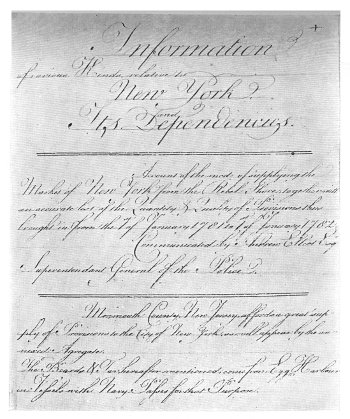 Information
of various Kinds, relative to
New York
and
Its Dependencies.
Account of the mode of supplying the
Market of New York from the Rebel Shore, together with
an accurate list of the Quantity & Quality of Provisions thus
brought in from the 1st of January 1781 to 1st of January 1782
Communicated by Andrew Elliot Esq
Superintendant General of the Police
Monmouth County, New Jersey, affords a great sup
ply of Provisions to the City of New York, as will appear by the an
nexed Agregate.
The Boards & Tar hereafter mentioned, come from Egg Harbour
in Vessels with Navy Passes for that Purpose.